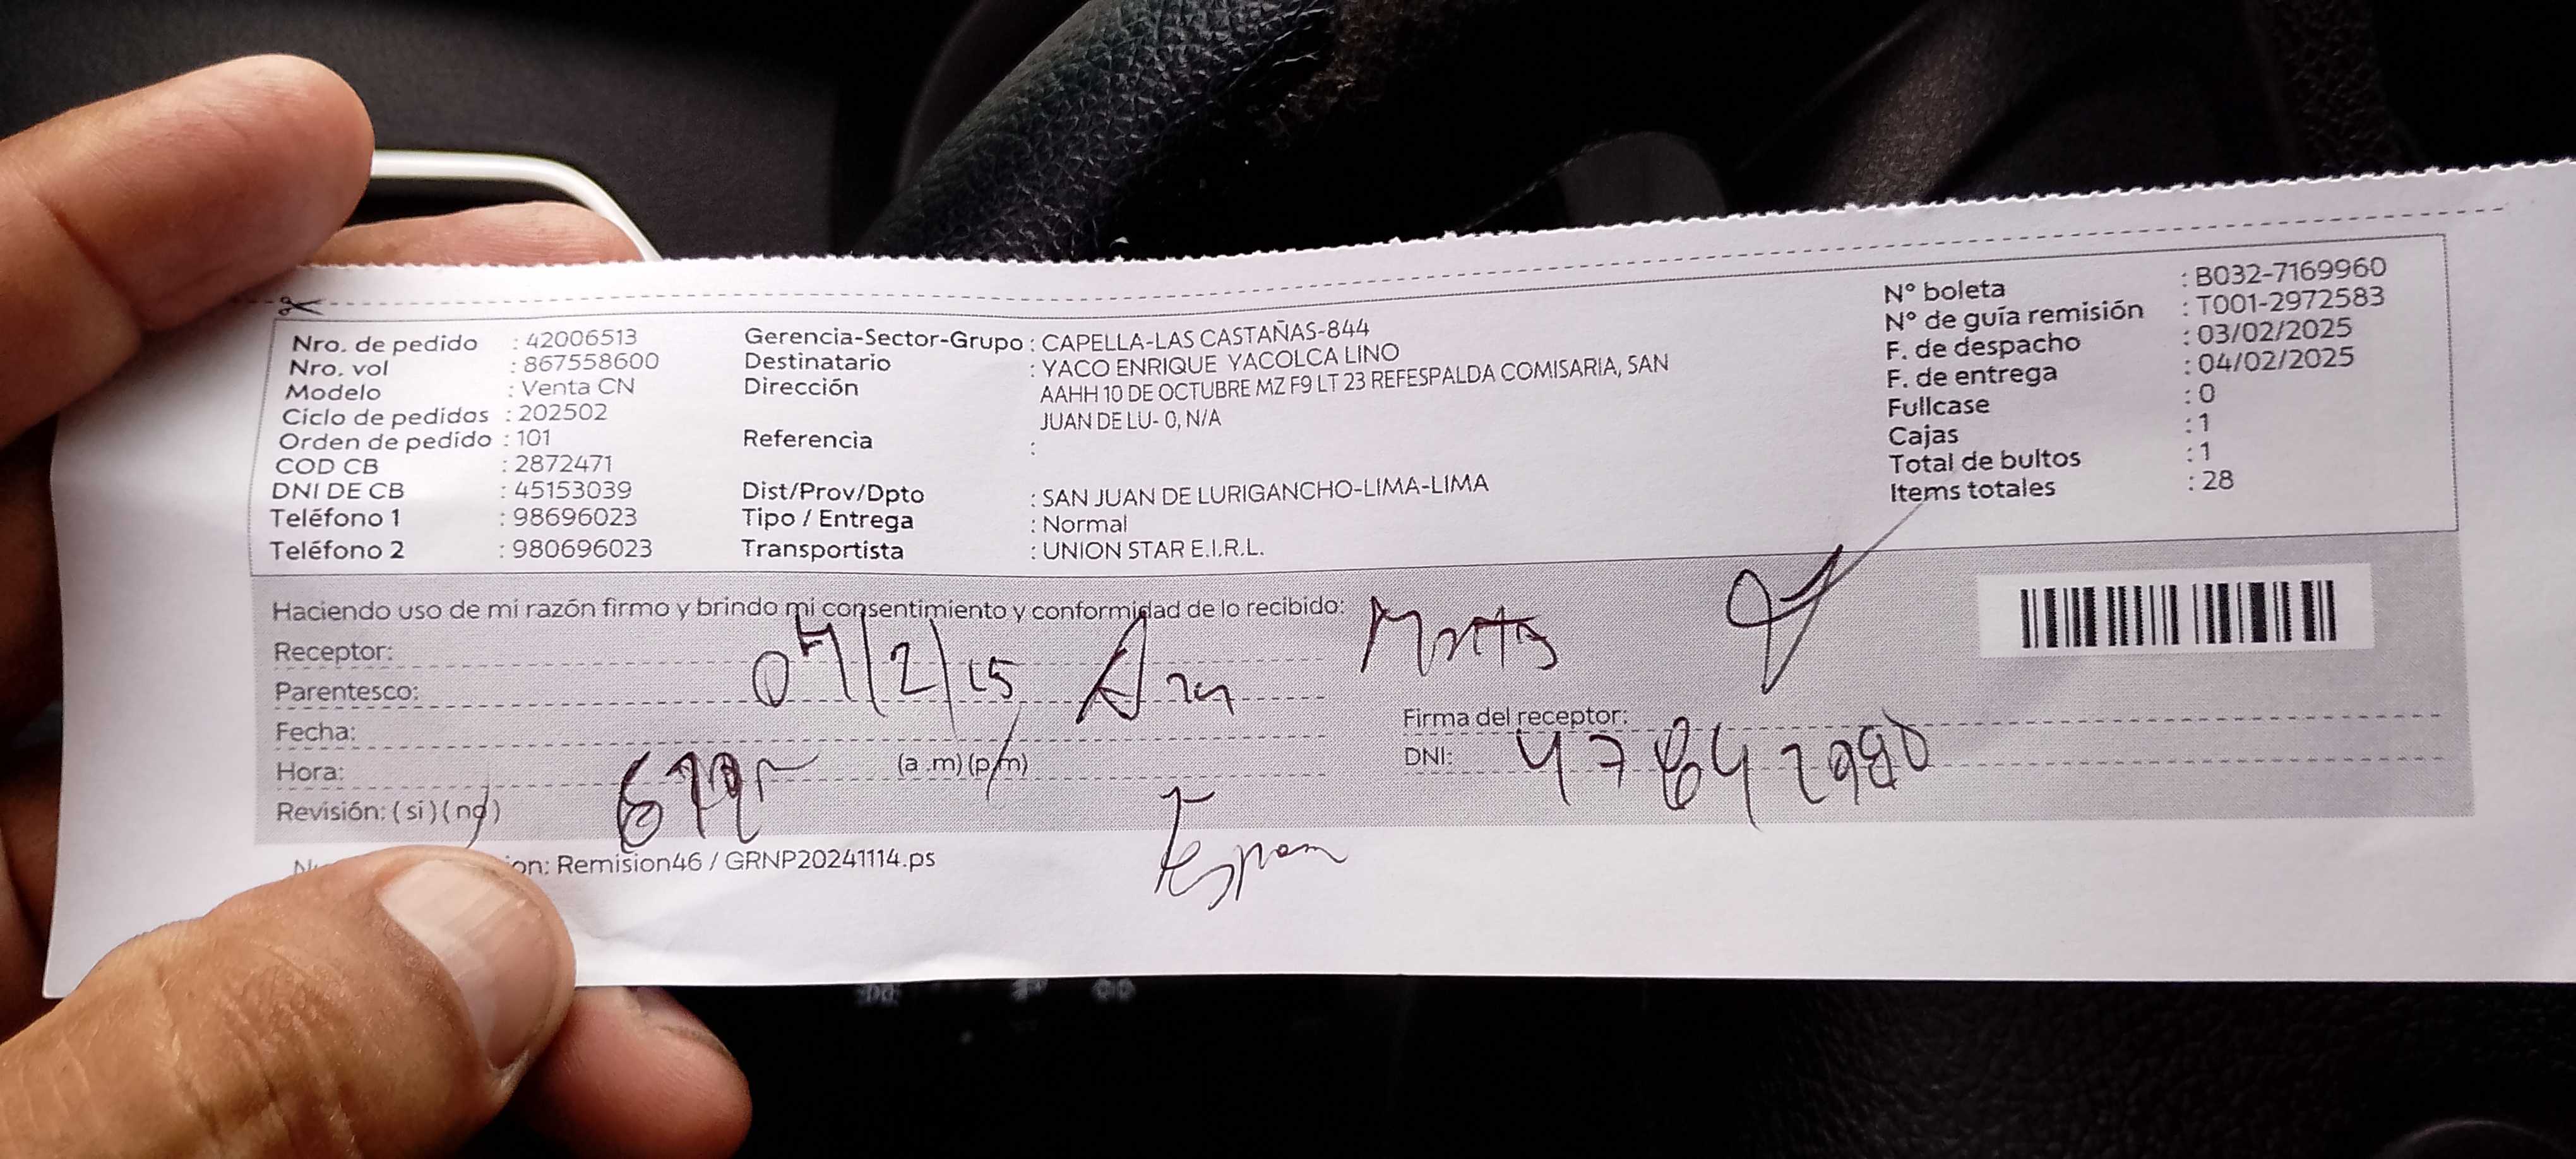 Nro. de pedido : 42006513
Nro. vol : 867558600
Modelo : Venta CN
Ciclo de pedidos : 202502
Orden de pedido : 101
COD CB : 2872471
DNI DE CB : 45153039
Teléfono 1 : 98696023
Teléfono 2 : 980696023
Gerencia-Sector-Grupo : CAPELLA-LAS CASTAÑAS-844
Destinatario : YACO ENRIQUE YACOLCA LINO
Dirección AAHH 10 DE OCTUBRE MZ F9 LT 23 REFESPALDA COMISARIA, SAN
JUAN DE LU- 0, N/A
Referencia :
Dist/Prov/Dpto : SAN JUAN DE LURIGANCHO-LIMA-LIMA
Tipo / Entrega : Normal
Transportista : UNION STAR E.I.R.L.
N° boleta : B032-7169960
N° de guía remisión : T001-2972583
F. de despacho : 03/02/2025
F. de entrega : 04/02/2025
Fullcase : 0
Cajas : 1
Total de bultos : 1
Items totales : 28
Haciendo uso de mi razón firmo y brindo mi consentimiento y conformidad de lo recibido:
Receptor:
Parentesco:
Fecha:
Hora: (a .m) (p.m)
Revisión: ( si ) ( no )
Firma del receptor:
DNI:
on: Remision46 / GRNP20241114.ps